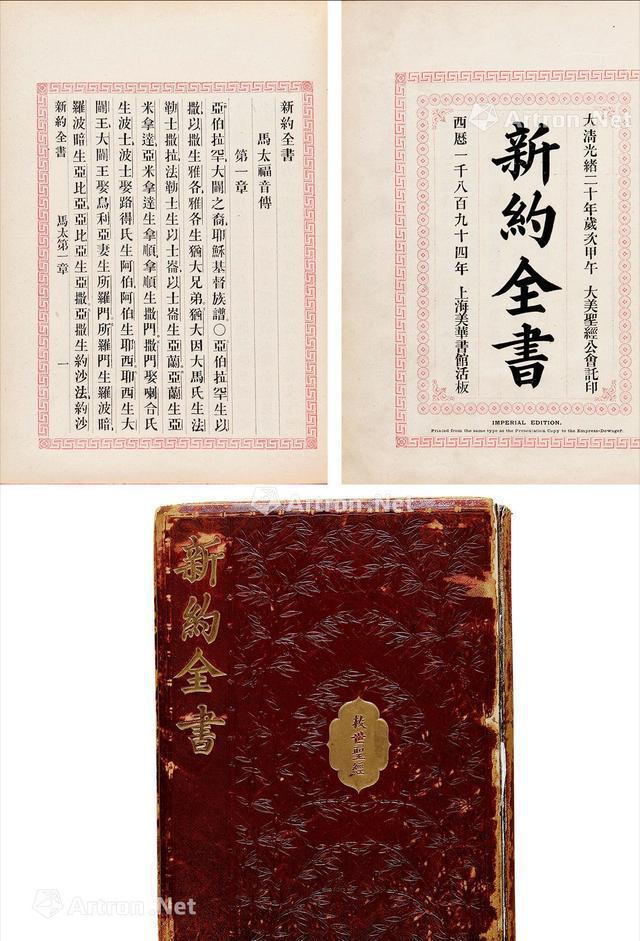 新約全書
馬太福音傳
第一章
亞伯拉罕大闢之裔耶穌基督族譜○亞伯拉罕生以
撒以撒生雅各雅各生猶大兄弟猶大因大馬氏生法
勒士撒拉法勒士生以士崙以士崙生亞蘭亞蘭生亞
米拿達亞米拿達生拿順拿順生撒門撒門娶喇合氏
生波士波士娶路得氏生阿伯阿伯生耶西耶西生大
闢王大闢王娶烏利亞妻生所羅門所羅門生羅波暗
羅波暗生亞比亞亞比亞生亞撒亞撒生約沙法約沙
新約全書 馬太第一章 一
大清光緒二十年歲次甲午 大美聖經公會託印
新約全書
西厯一千八百九十四年 上海美華書館活板
IMPERIAL EDITION.
Printed from the same type as the Presentation Copy to the Empress-Dowager.
新約全書
救世聖經
Artron.Net
Artron.Net
Artron.Net
Artron.Net